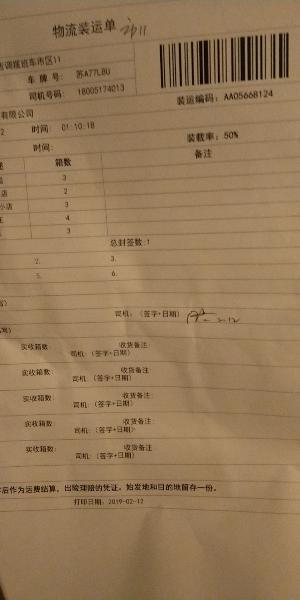 物流装运单
古调拨班车市区11
车 牌 号: 苏A77L8U
司机号码: 18005174013
装运编码: AA05668124
有限公司
2 时间: 01:10:18
装载率: 50%
时间:
箱数 备注
3
店 2
小店 3
4
3
总封签数:1
2. 3.
5. 6.
司机: (签字+日期)
写)
实收箱数: 收货备注:
司机: (签字+日期)
实收箱数: 收货备注:
司机: (签字+日期)
实收箱数: 收货备注:
司机: (签字+日期)
实收箱数: 收货备注:
司机: (签字+日期)
实收箱数: 收货备注:
司机: (签字+日期)
后作为运费结算, 出险理赔的凭证。始发地和目的地留存一份。
打印日期: 2019-02-12